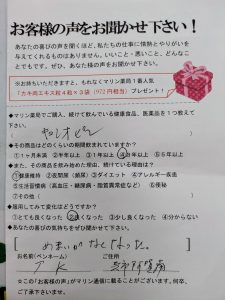 お客様の声をお聞かせ下さい！
あなたの喜びの声を聞くほど、私たちの仕事に情熱とやりがいを
与えてくれるものはありません。いいこと・悪いこと、どんなこ
とでもです。ぜひ、あなたの声をお聞かせ下さい。
※お持ちいただきますと、もれなくマリン薬局1番人気
「カキ肉エキス粒4粒×3袋（972円相当）プレゼント！
◆マリン薬局でご購入、続けて飲んでいる健康食品、医薬品を1つ教えて
下さい。
◆その商品はどのくらいの期間飲まれていますか？
①1ヶ月未満 ②半年以上 ③1年以上 ④3年以上 ⑤5年以上
◆また、その商品を飲み始めた理由、続けている理由は？
①健康維持 ②夜間尿（頻尿） ③ダイエット ④アレルギー疾患
⑤生活習慣病（高血圧・糖尿病・脂質異常症など） ⑥便秘
⑦その他（ ）
◆服用してみて変化はどうですか？
①とても良くなった ②良くなった ③少し良くなった ④分からない
◆あなたの喜びの気持ちをぜひ聞かせて下さい！
めまいがなくなった。
お名前（ペンネーム） ご住所
T K
☆この「お客様の声」がマリン通信に載ることがございます。何卒、
ご了承下さいませ。